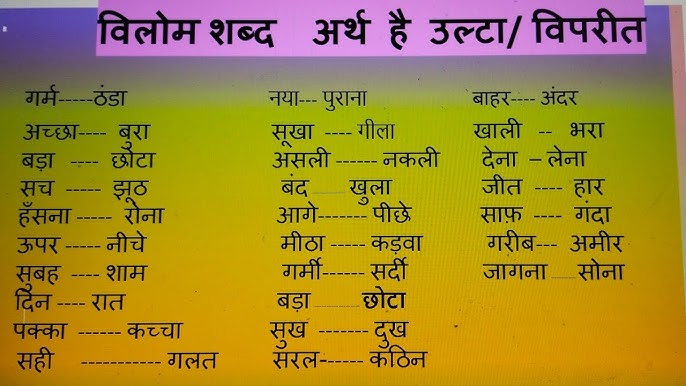 विलोम शब्द अर्थ है उल्टा/ विपरीत
गर्म-----ठंडा
अच्छा---- बुरा
बड़ा ---- छोटा
सच ----- झूठ
हँसना ----- रोना
ऊपर -----नीचे
सुबह ---- शाम
दिन ---- रात
पक्का ------ कच्चा
सही ------------ गलत
नया--- पुराना
सूखा ---- गीला
असली ------ नकली
बंद ____ खुला
आगे------ पीछे
मीठा ----- कड़वा
गर्मी----- सर्दी
बड़ा ______ छोटा
सुख ------- दुख
सरल------- कठिन
बाहर---- अंदर
खाली -- भरा
देना – लेना
जीत ---- हार
साफ़ ---- गंदा
गरीब--- अमीर
जागना ____ सोना